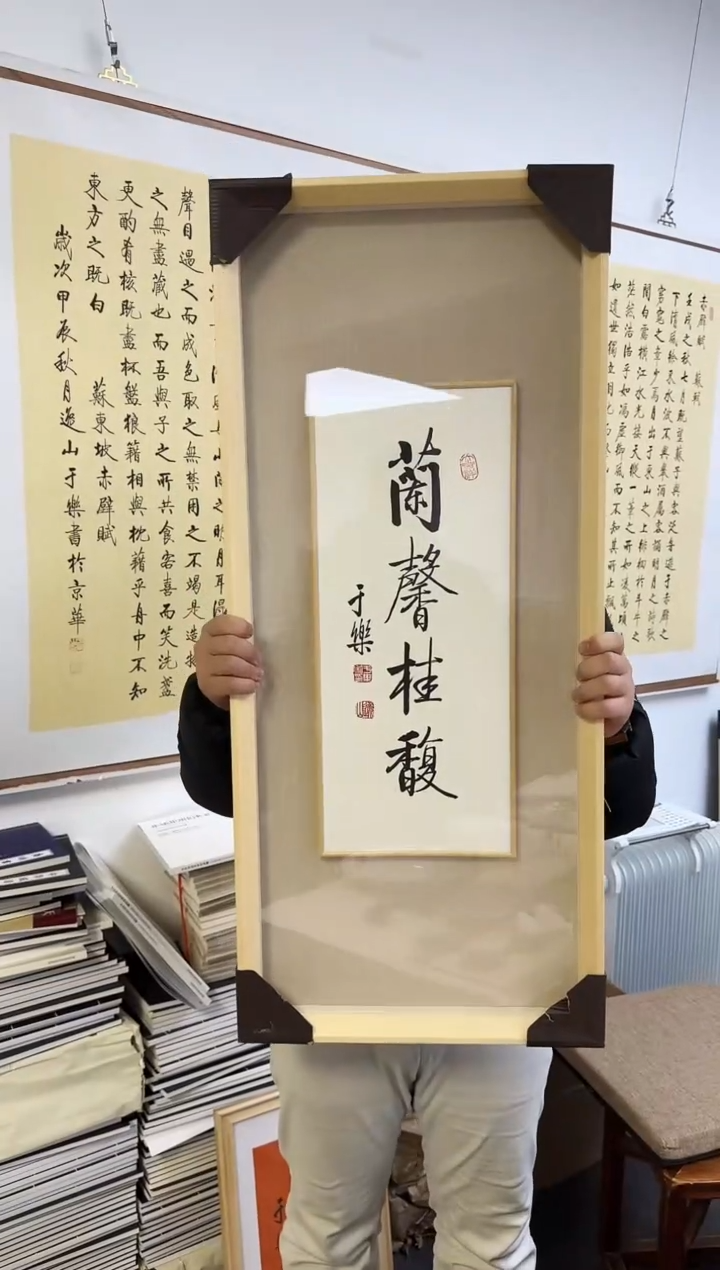 蘭馨桂馥
于樂
赤壁賦 蘇軾
壬戌之秋七月既望蘇子與客泛舟遊于赤壁之
下清風徐來水波不興舉酒屬客誦明月之詩歌
窈窕之章少焉月出于東山之上徘徊於斗牛之
間白露橫江水光接天縱一葦之所如凌萬頃
茫然浩浩乎如馮虛御風而不知其所止飄
如遺世獨立羽化而
聲目遇之而成色取之無禁用之不竭是造物
之無盡藏也而吾與子之所共食客喜而笑洗盞
更酌肴核既盡杯盤狼籍相與枕藉乎舟中不知
東方之既白
蘇東坡赤壁賦
歲次甲辰秋月邀山于樂書於京華